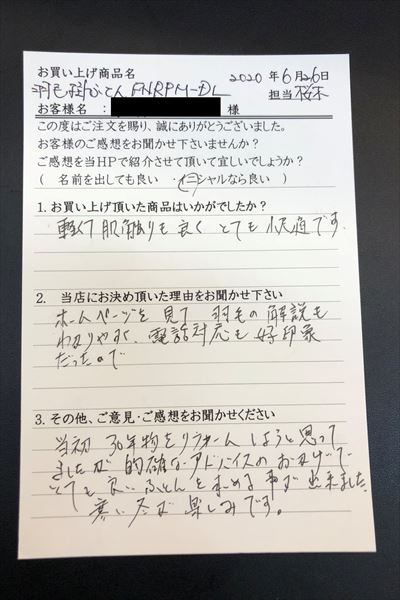 お買い上げ商品名 2020年6月26日
羽毛掛ふとん FNRPM-DL 担当 桜木
お客様名： 様
この度はご注文を賜り、誠にありがとうございました。
お客様のご感想をお聞かせ下さいませんか？
ご感想を当HPで紹介させて頂いて宜しいでしょうか？
（ 名前を出しても良い ・イニシャルなら良い ）
1. お買い上げ頂いた商品はいかがでしたか？
軽くて肌触りも良く とても快適です。
2. 当店にお決め頂いた理由をお聞かせ下さい
ホームページを見て 羽毛の解説も
わかりやすく、電話対応も好印象
だったので
3. その他、ご意見・ご感想をお聞かせください
当初 30年物をリフォームしようと思って
ましたが 的確なアドバイスのおかげで
とても良いふとんを求める事が出来ました。
寒い冬が楽しみです。